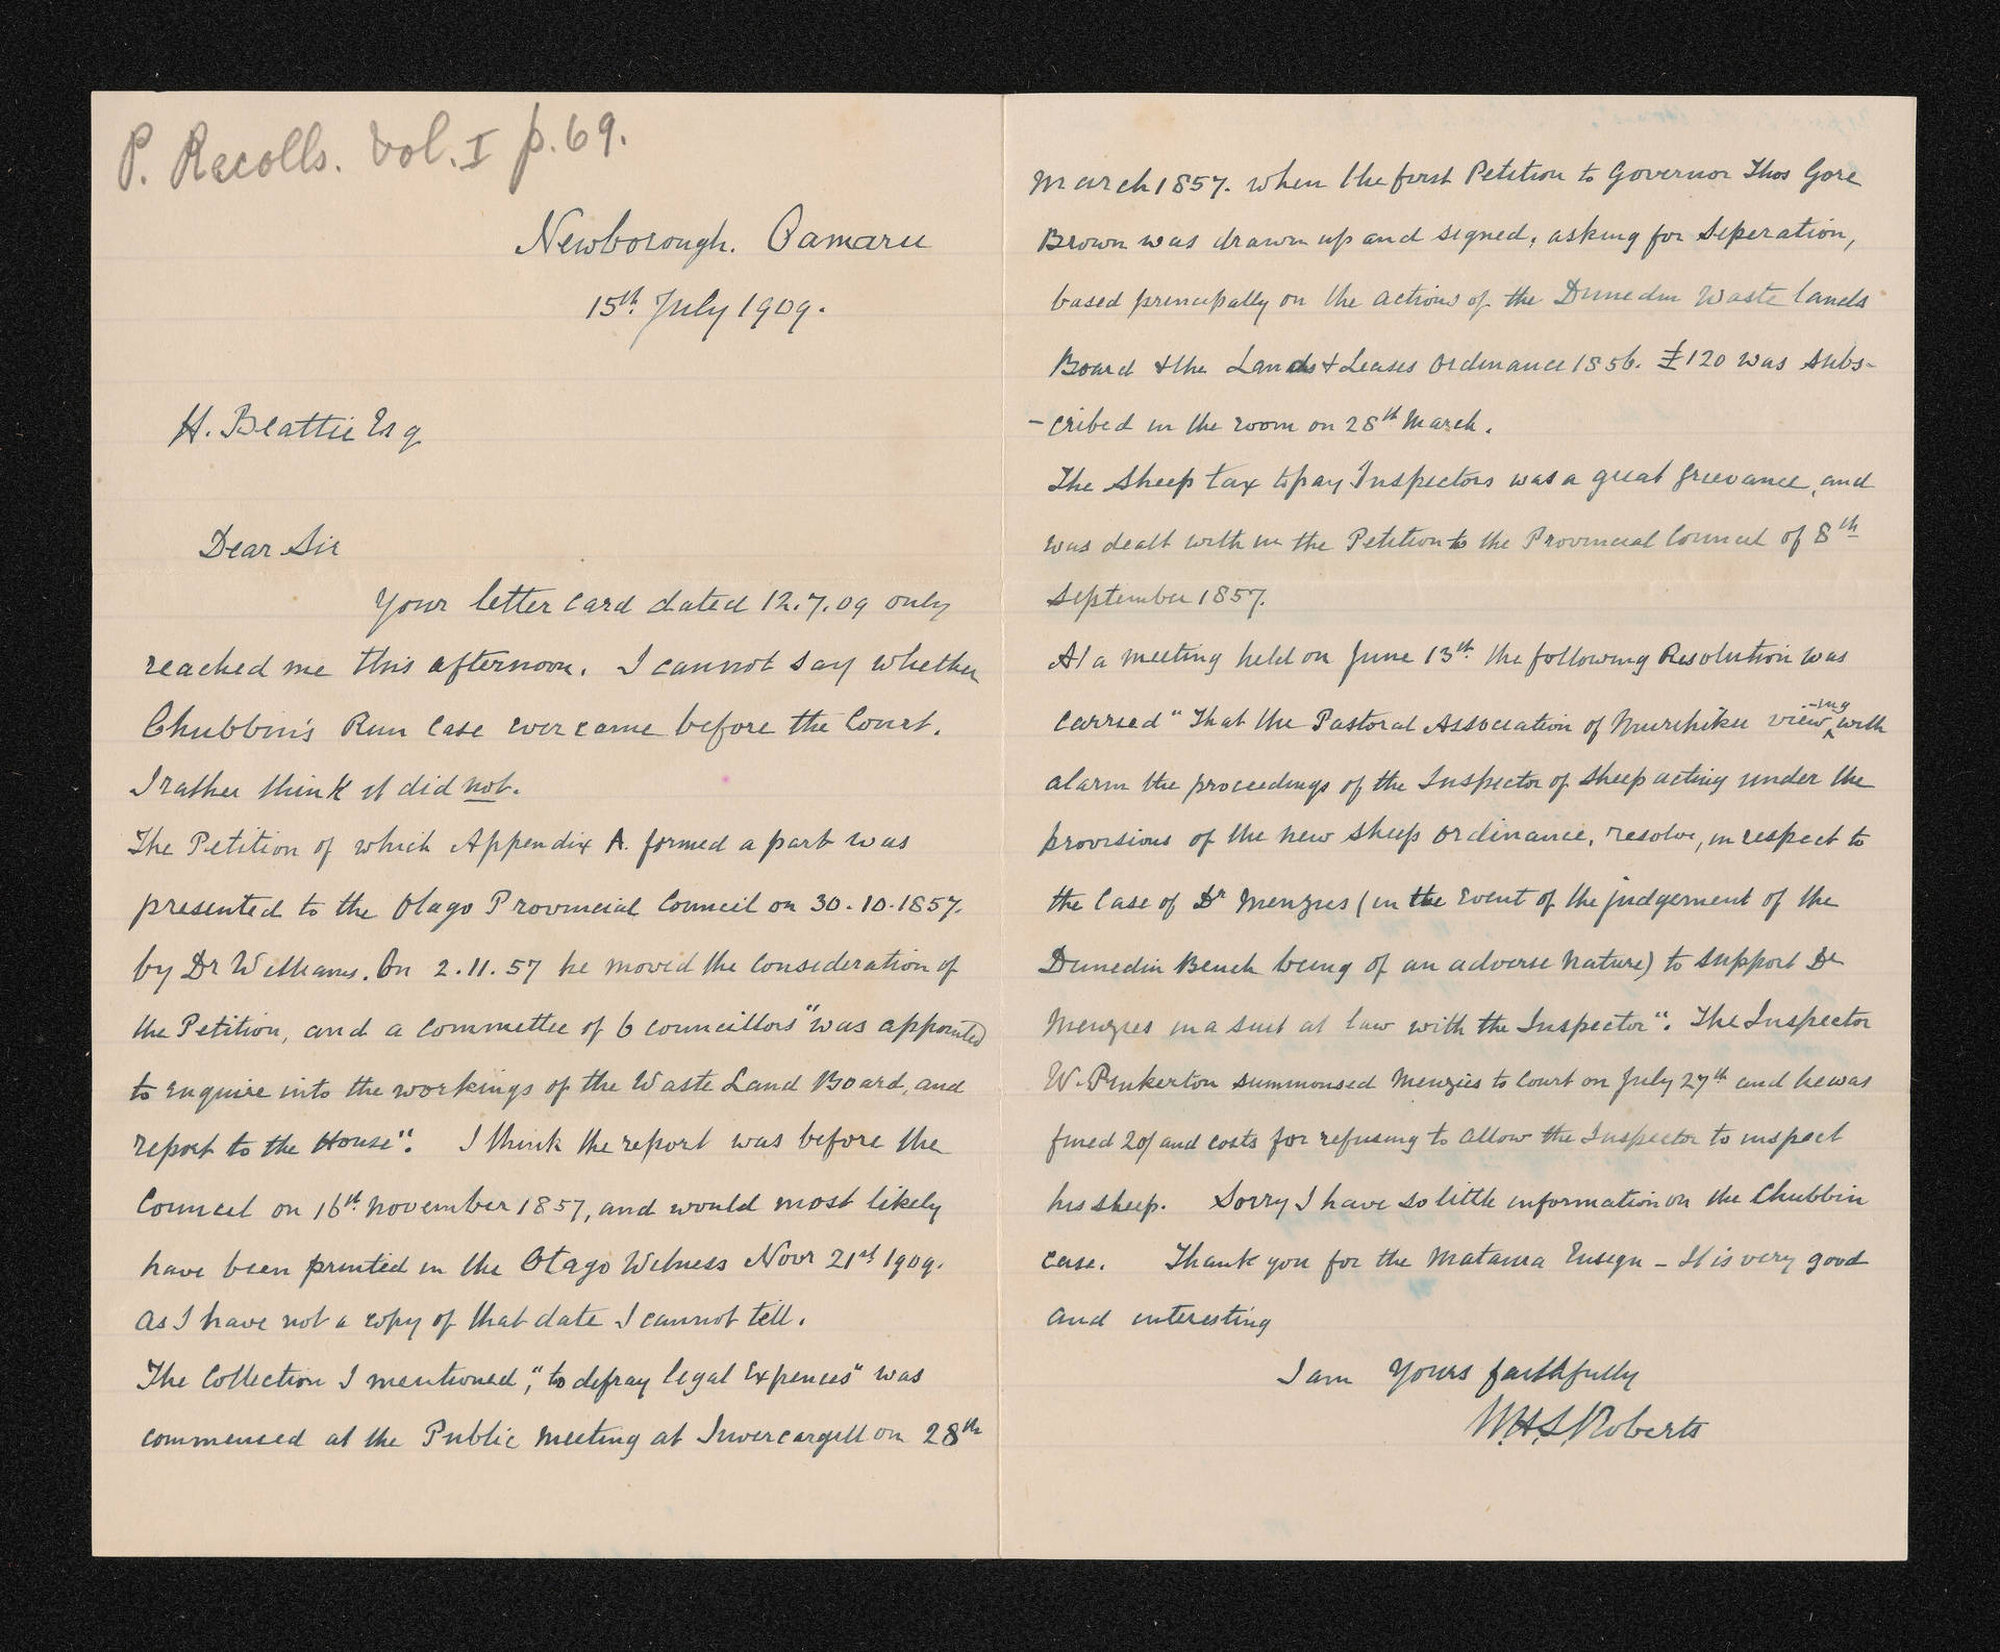 P. Recolls. Vol. I p. 69.
Newborough. Oamaru
15th July 1909.
H. Beattie Esq
Dear Sir
Your letter card dated 12.7.09 only
reached me this afternoon. I cannot say whether
Chubbin's Run case ever came before the Court.
I rather think it did not.
The Petition of which Appendix A. formed a part was
presented to the Otago Provincial Council on 30.10.1857.
by Dr Williams. On 2.11.57 he moved the consideration of
the Petition, and a committee of 6 councillors "was appointed
to enquire into the workings of the Waste Land Board, and
report to the House". I think the report was before the
Council on 16th November 1857, and would most likely
have been printed in the Otago Witness Novr 21st 1909.
as I have not a copy of that date I cannot tell.
The Collection I mentioned, "to defray legal Expences" was
commenced at the Public Meeting at Invercargill on 28th
March 1857. when the first Petition to Governor Thos Gore
Brown was drawn up and signed, asking for Seperation,
based principally on the actions of the Dunedin Waste lands
Board & the Lands & Leases Ordinance 1856. £120 was subs-
-cribed in the room on 28th March.
The Sheep tax to pay Inspectors was a great grievance, and
was dealt with in the Petition to the Provincial Council of 8th
September 1857.
At a meeting held on June 13th the following Resolution was
carried "That the Pastoral Association of Murihiku view-ing with
alarm the proceedings of the Inspector of sheep acting under the
provisions of the new sheep ordinance, resolve, in respect to
the case of Dr Menzies (in the event of the judgement of the
Dunedin Bench being of an adverse nature) to support Dr
Menzies in a suit at law with the Inspector". The Inspector
W. Pinkerton summonsed Menzies to Court on July 27th and he was
fined 20/ and costs for refusing to allow the Inspector to inspect
his sheep. Sorry I have so little information on the Chubbin
case. Thank you for the Mataura Ensign – It is very good
and interesting
I am Yours faithfully
W.H.S. Roberts